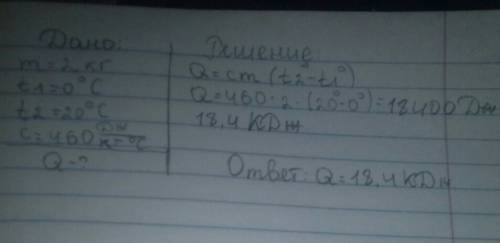 Дано:
m=2 кг
t1=0°C
t2=20°C
c=460 Дж/кг°C
Q-?
Решение:
Q=cm(t2°-t1°)
Q=460·2·(20°-0°)=18400Дж
18,4 КДж
Ответ: Q=18,4 КДж